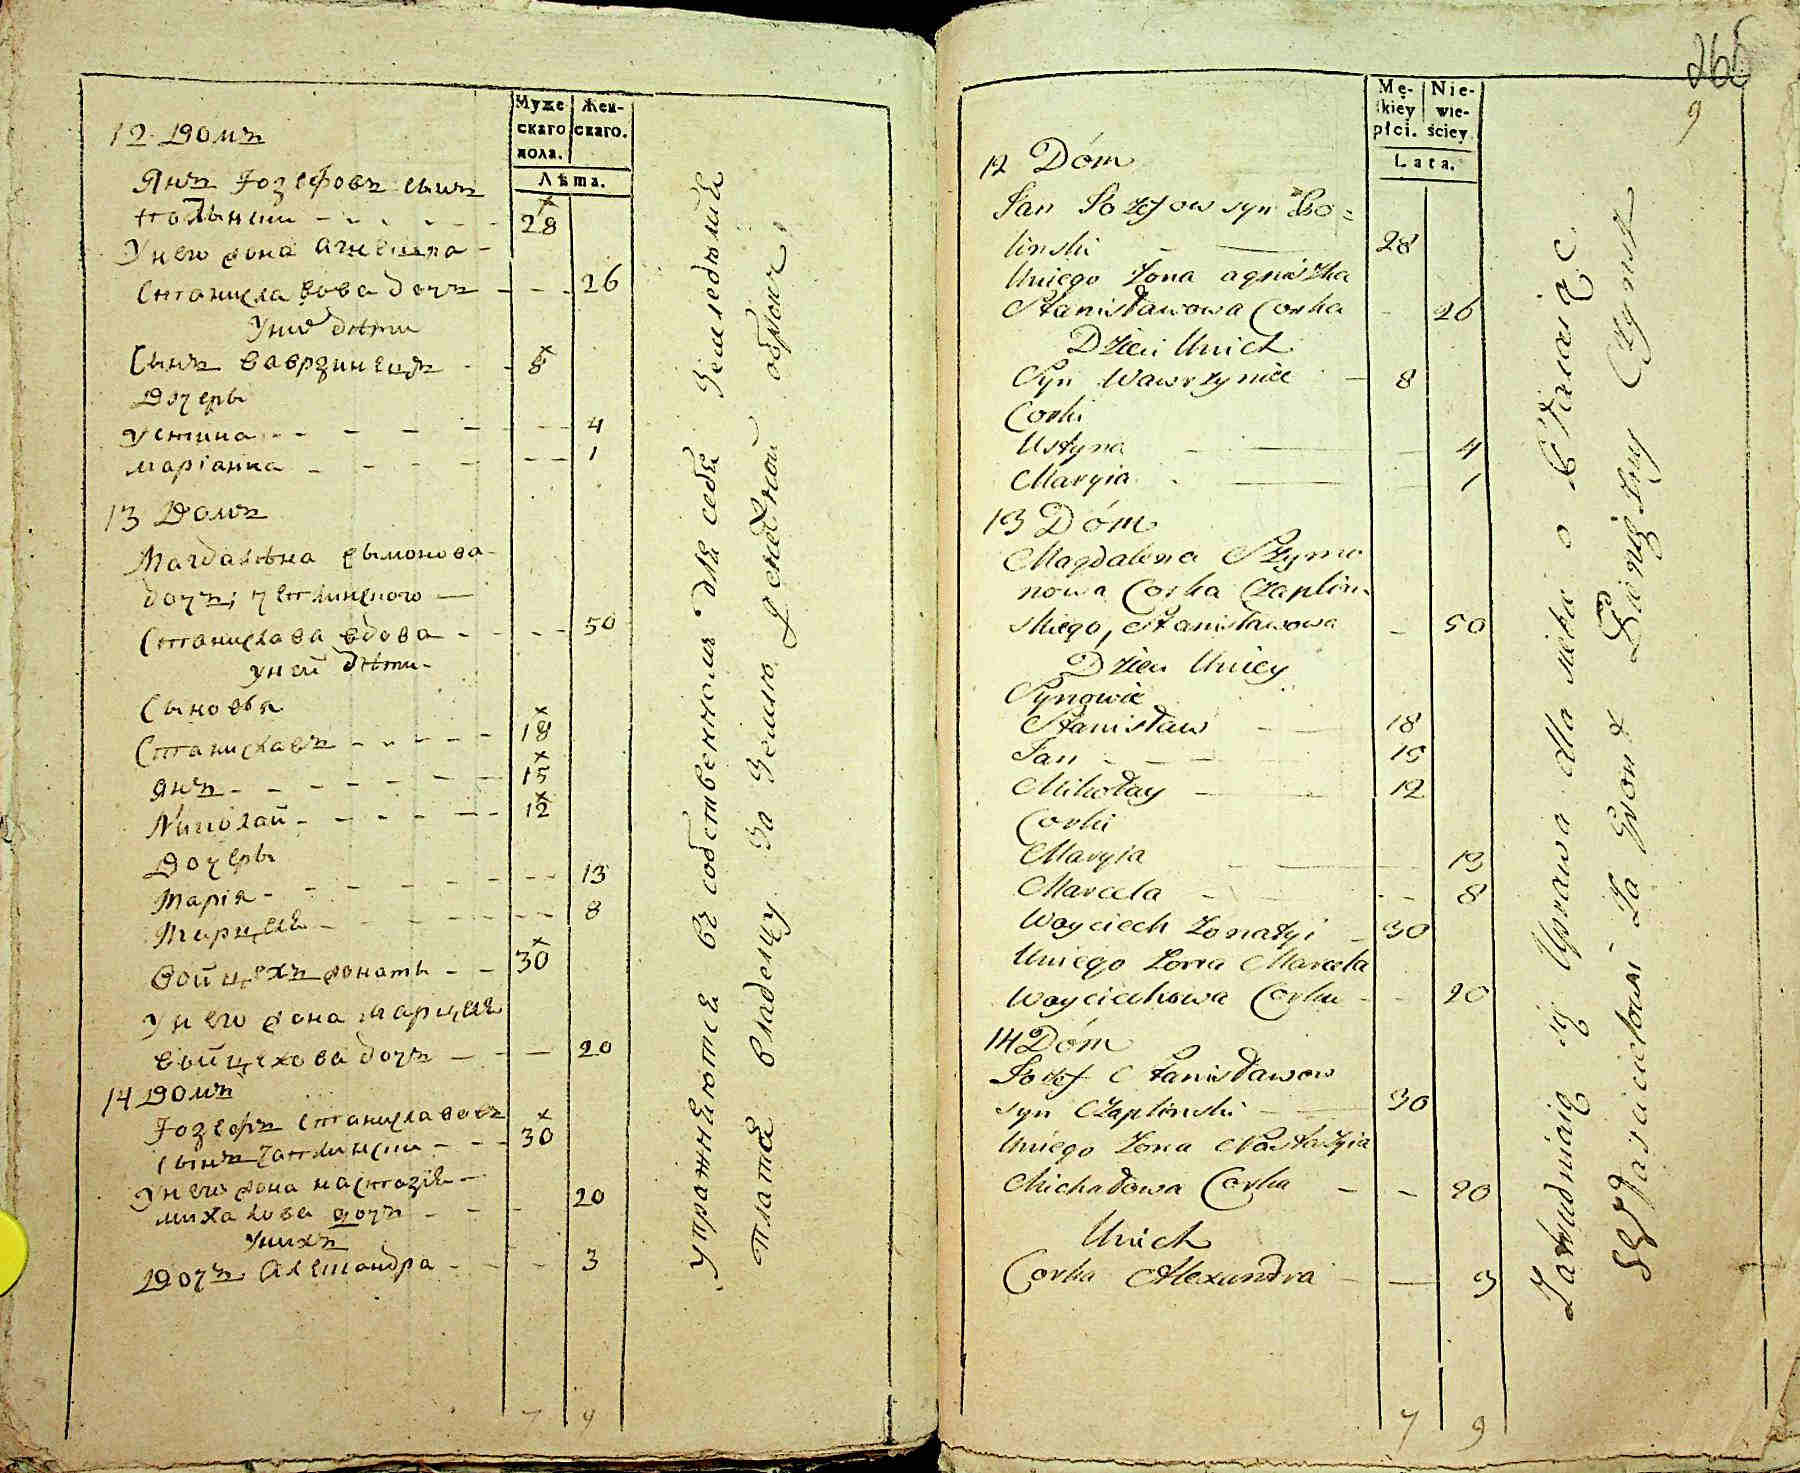 Муже
скаго
пола.
Жен-
скаго.
Лѣта.
12 Домъ
Янъ Іозефовъ сынъ
28
У него жона Агнешка
Станиславова дочь - - - 26
У них дѣти
Сынъ Вавржинецъ - - 8
Дочеры
Устина - - - - - 4
Маріанна - - - - - 1
13 Домъ
Магдалѣна Сымонова
дочь, Чеплинского
Станислава вдова - - - - 50
У ней дѣти
Сыновья
Станиславъ - - - - - 18
Янъ - - - - - - 15
Николай - - - - - 12
Дочеры
Марія - - - - - - 13
Марцеля - - - - - 8
Войцехъ Донаты - - 30
У него жона Марцеля
Войцехова дочь - - - 20
14 Домъ
Іозефъ Станиславовъ
сынъ Чаплински - - - 30
У него жона Настазія
Михалова дочь - - - 20
У нихъ
Дочь Александра - - - 3
7 9
Упражняются въ собственномъ для себя Земледѣліе
Платя Владелцу За Землю Денежной оброкъ,
265
9
Mę-
skiey
płci.
Nie-
wie-
ściey
Lata.
12 Dóm
Jan Jozefow syn Go=
linski - - 28
Uniego Zona agniszka
Stanisławowa Corka - 26
Dzieci Unich
Syn Wawrzyniec - 8
Corki
Ustyna - - - 4
Maryia - - - 1
13 Dóm
Magdalena Szymo
nowa Corka Czaplin-
skiego, Stanisławowa - 50
Dzieci Uniey
Synowie
Stanisław - - 18
Jan - - - 15
Mikołay - - 12
Corki
Maryia - - - 13
Marcela - - - 8
Woyciech Donatyi - 30
Uniego Zona Marcela
Woyciechowa Corka - - 20
14 Dóm
Jozef Stanisławow
syn Czaplinski - - 30
Uniego Zona Nastazyia
Michałowa Corka - - 20
Unich
Corka Alexandra - - 3
7 9
Zatrudniaią się Uprawą dla siebie o
za Gront Pieniężny Czynsz